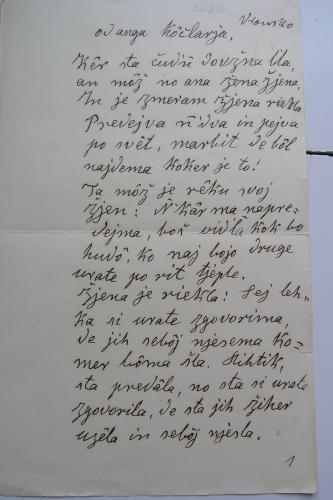 Vransko
od anga Kôčlarja.
Kêr sta čudn doužna bla,
an môž no ana žena žjena.
In je zmeram žjena riekla
Predejva n idva in pejva
po svêt, marbit de bôl
najdema koker je to!
Ta môž je rêku svoj
žjen: N kar ma napre-
dejma, boš vidla kok bo
hudô, ko naj bojo druge
urate po rit tjeple.
Žjena je riekla: Sej leh-
ka si urate zgovorima,
de jih sebôj njesema ko-
mer bôma šla. Rihtik,
sta predála, no sta si urate
zgovorila, de sta jih žiher
uzêla in sebôj njesla.
1